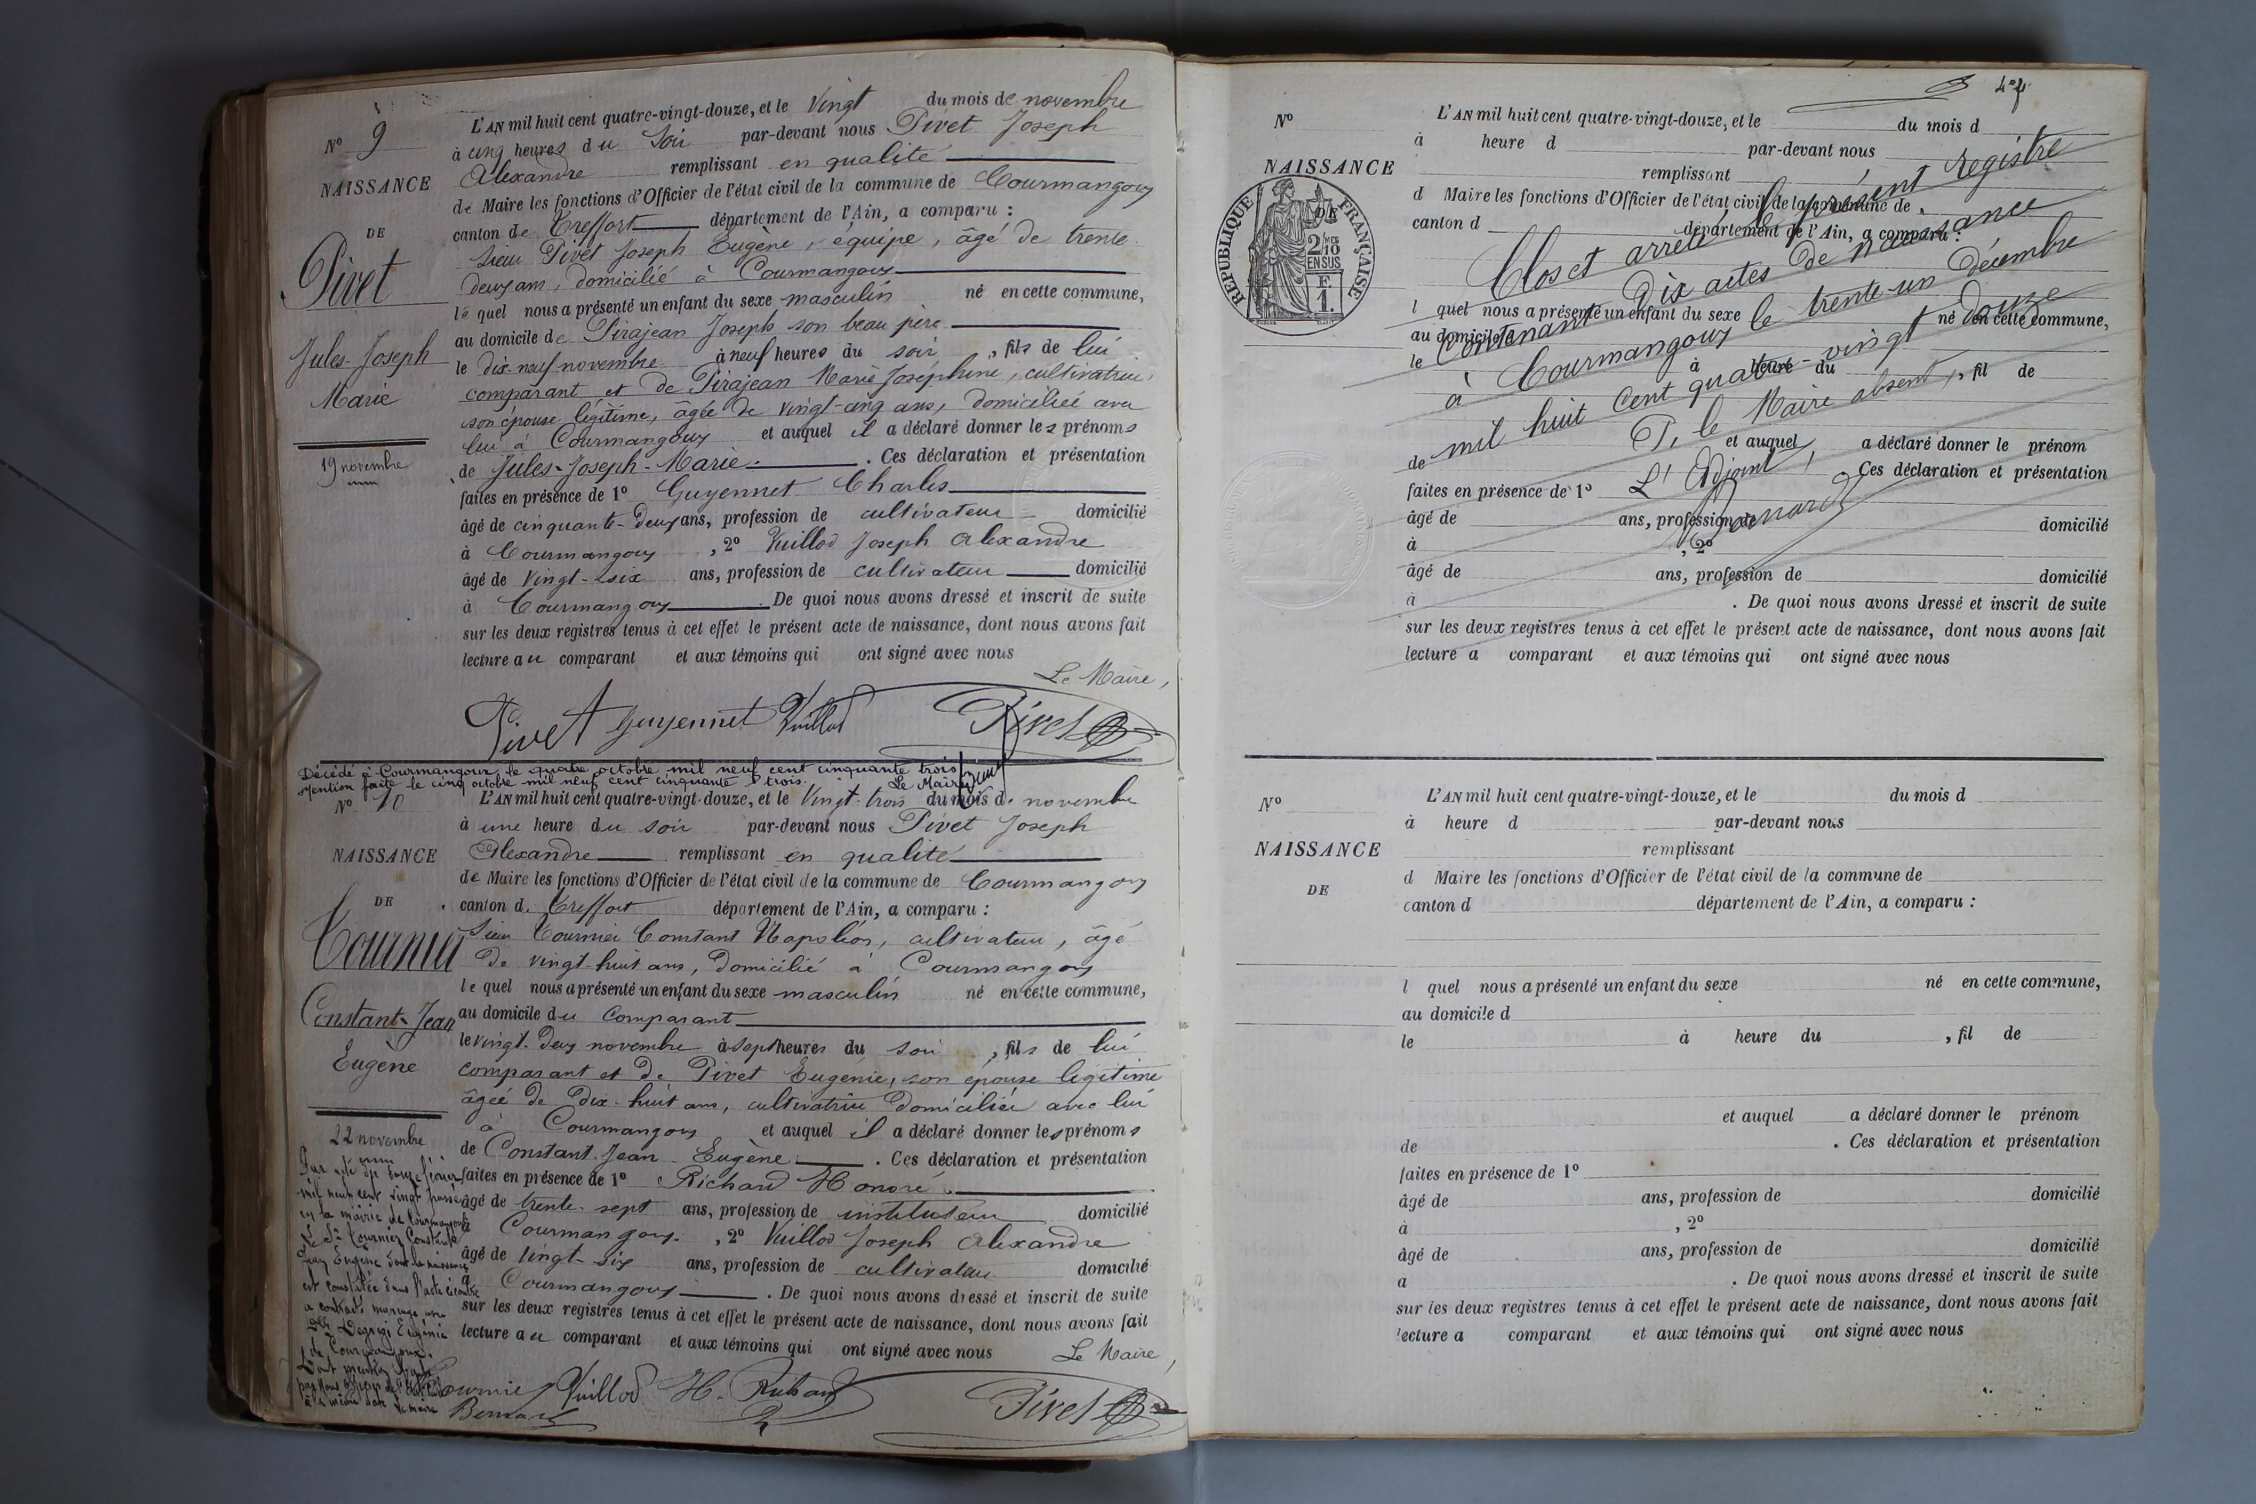 N° 9
NAISSANCE
DE
Pivet
Jules-Joseph
Marie
19 novembre
L'AN mil huit cent quatre-vingt-douze, et le Vingt du mois de novembre
à cinq heures du Soir par-devant nous Pivet Joseph
Alexandre remplissant en qualité
de Maire les fonctions d'Officier de l'état civil de la commune de Courmangoux
canton de Treffort département de l'Ain, a comparu :
Sieur Pivet Joseph Eugène, équipe, âgé de trente
deux ans, domicilié à Courmangoux
le quel nous a présenté un enfant du sexe masculin né en cette commune,
au domicile de Pirajean Joseph son beau père
le dix-neuf novembre à neuf heures du soir, fils de lui
comparant et de Pirajean Marie Joséphine, cultivatrice,
son épouse légitime, âgée de vingt-cinq ans, domiciliée avec
lui à Courmangoux et auquel il a déclaré donner les prénoms
de Jules-Joseph-Marie. Ces déclaration et présentation
faites en présence de 1° Guyennet Charles
âgé de cinquante-deux ans, profession de cultivateur domicilié
à Courmangoux, 2° Vuillod Joseph Alexandre
âgé de vingt-six ans, profession de cultivateur domicilié
à Courmangoux. De quoi nous avons dressé et inscrit de suite
sur les deux registres tenus à cet effet le présent acte de naissance, dont nous avons fait
lecture au comparant et aux témoins qui ont signé avec nous
Le Maire,
Pivet Guyennet Vuillod Pivet
Décédé à Courmangoux le quatre octobre mil neuf cent cinquante trois
Mention faite le cinq octobre mil neuf cent cinquante trois. Le Maire
N° 10
NAISSANCE
DE
Tournier
Constant-Jean
Eugène
22 novembre
L'AN mil huit cent quatre-vingt-douze, et le Vingt-trois du mois de novembre
à une heure du soir par-devant nous Pivet Joseph
Alexandre remplissant en qualité
de Maire les fonctions d'Officier de l'état civil de la commune de Courmangoux
canton de Treffort département de l'Ain, a comparu :
Sieur Tournier Constant Napoléon, cultivateur, âgé
de vingt-huit ans, domicilié à Courmangoux
le quel nous a présenté un enfant du sexe masculin né en cette commune,
au domicile du comparant
le vingt-deux novembre à sept heures du soir, fils de lui
comparant et de Pivet Eugénie, son épouse légitime
âgée de dix-huit ans, cultivatrice domiciliée avec lui
à Courmangoux et auquel il a déclaré donner les prénoms
de Constant Jean Eugène. Ces déclaration et présentation
faites en présence de 1° Richard Honoré
âgé de trente-sept ans, profession de instituteur domicilié
à Courmangoux, 2° Vuillod Joseph Alexandre
âgé de vingt-six ans, profession de cultivateur domicilié
à Courmangoux. De quoi nous avons dressé et inscrit de suite
sur les deux registres tenus à cet effet le présent acte de naissance, dont nous avons fait
lecture au comparant et aux témoins qui ont signé avec nous
Le Maire,
Par acte du
mil neuf cent vingt passé
en la mairie de Courmangoux
le Sr Tournier Constant
Jean Eugène dont la naissance
est constatée dans l'acte ci contre
a contracté mariage avec
Dlle Eugénie
de Courmangoux.
à la même date Le maire
Bernard
Tournier Vuillod H. Richard Pivet
N°
NAISSANCE
REPUBLIQUE FRANÇAISE
DE
2 10
EN SUS
F
1.
L'AN mil huit cent quatre-vingt-douze, et le du mois d
à heure d par-devant nous
remplissant
d Maire les fonctions d'Officier de l'état civil de la commune de
canton d département de l'Ain, a comparu :
l quel nous a présenté un enfant du sexe né en cette commune,
au domicile d
le à heure du , fil de
et auquel a déclaré donner le prénom
de Ces déclaration et présentation
faites en présence de 1°
âgé de ans, profession de domicilié
à , 2°
âgé de ans, profession de domicilié
à . De quoi nous avons dressé et inscrit de suite
sur les deux registres tenus à cet effet le présent acte de naissance, dont nous avons fait
lecture a comparant et aux témoins qui ont signé avec nous
Clos et arrêté le présent registre
contenant dix actes de naissance
à Courmangoux le trente-un décembre
mil huit cent quatre-vingt douze
P. le Maire absent,
L'Adjoint,
N°
NAISSANCE
DE
L'AN mil huit cent quatre-vingt-douze, et le du mois d
à heure d par-devant nous
remplissant
d Maire les fonctions d'Officier de l'état civil de la commune de
canton d département de l'Ain, a comparu :
l quel nous a présenté un enfant du sexe né en cette commune,
au domicile d
le à heure du , fil de
et auquel a déclaré donner le prénom
de . Ces déclaration et présentation
faites en présence de 1°
âgé de ans, profession de domicilié
à , 2°
âgé de ans, profession de domicilié
a . De quoi nous avons dressé et inscrit de suite
sur les deux registres tenus à cet effet le présent acte de naissance, dont nous avons fait
lecture a comparant et aux témoins qui ont signé avec nous